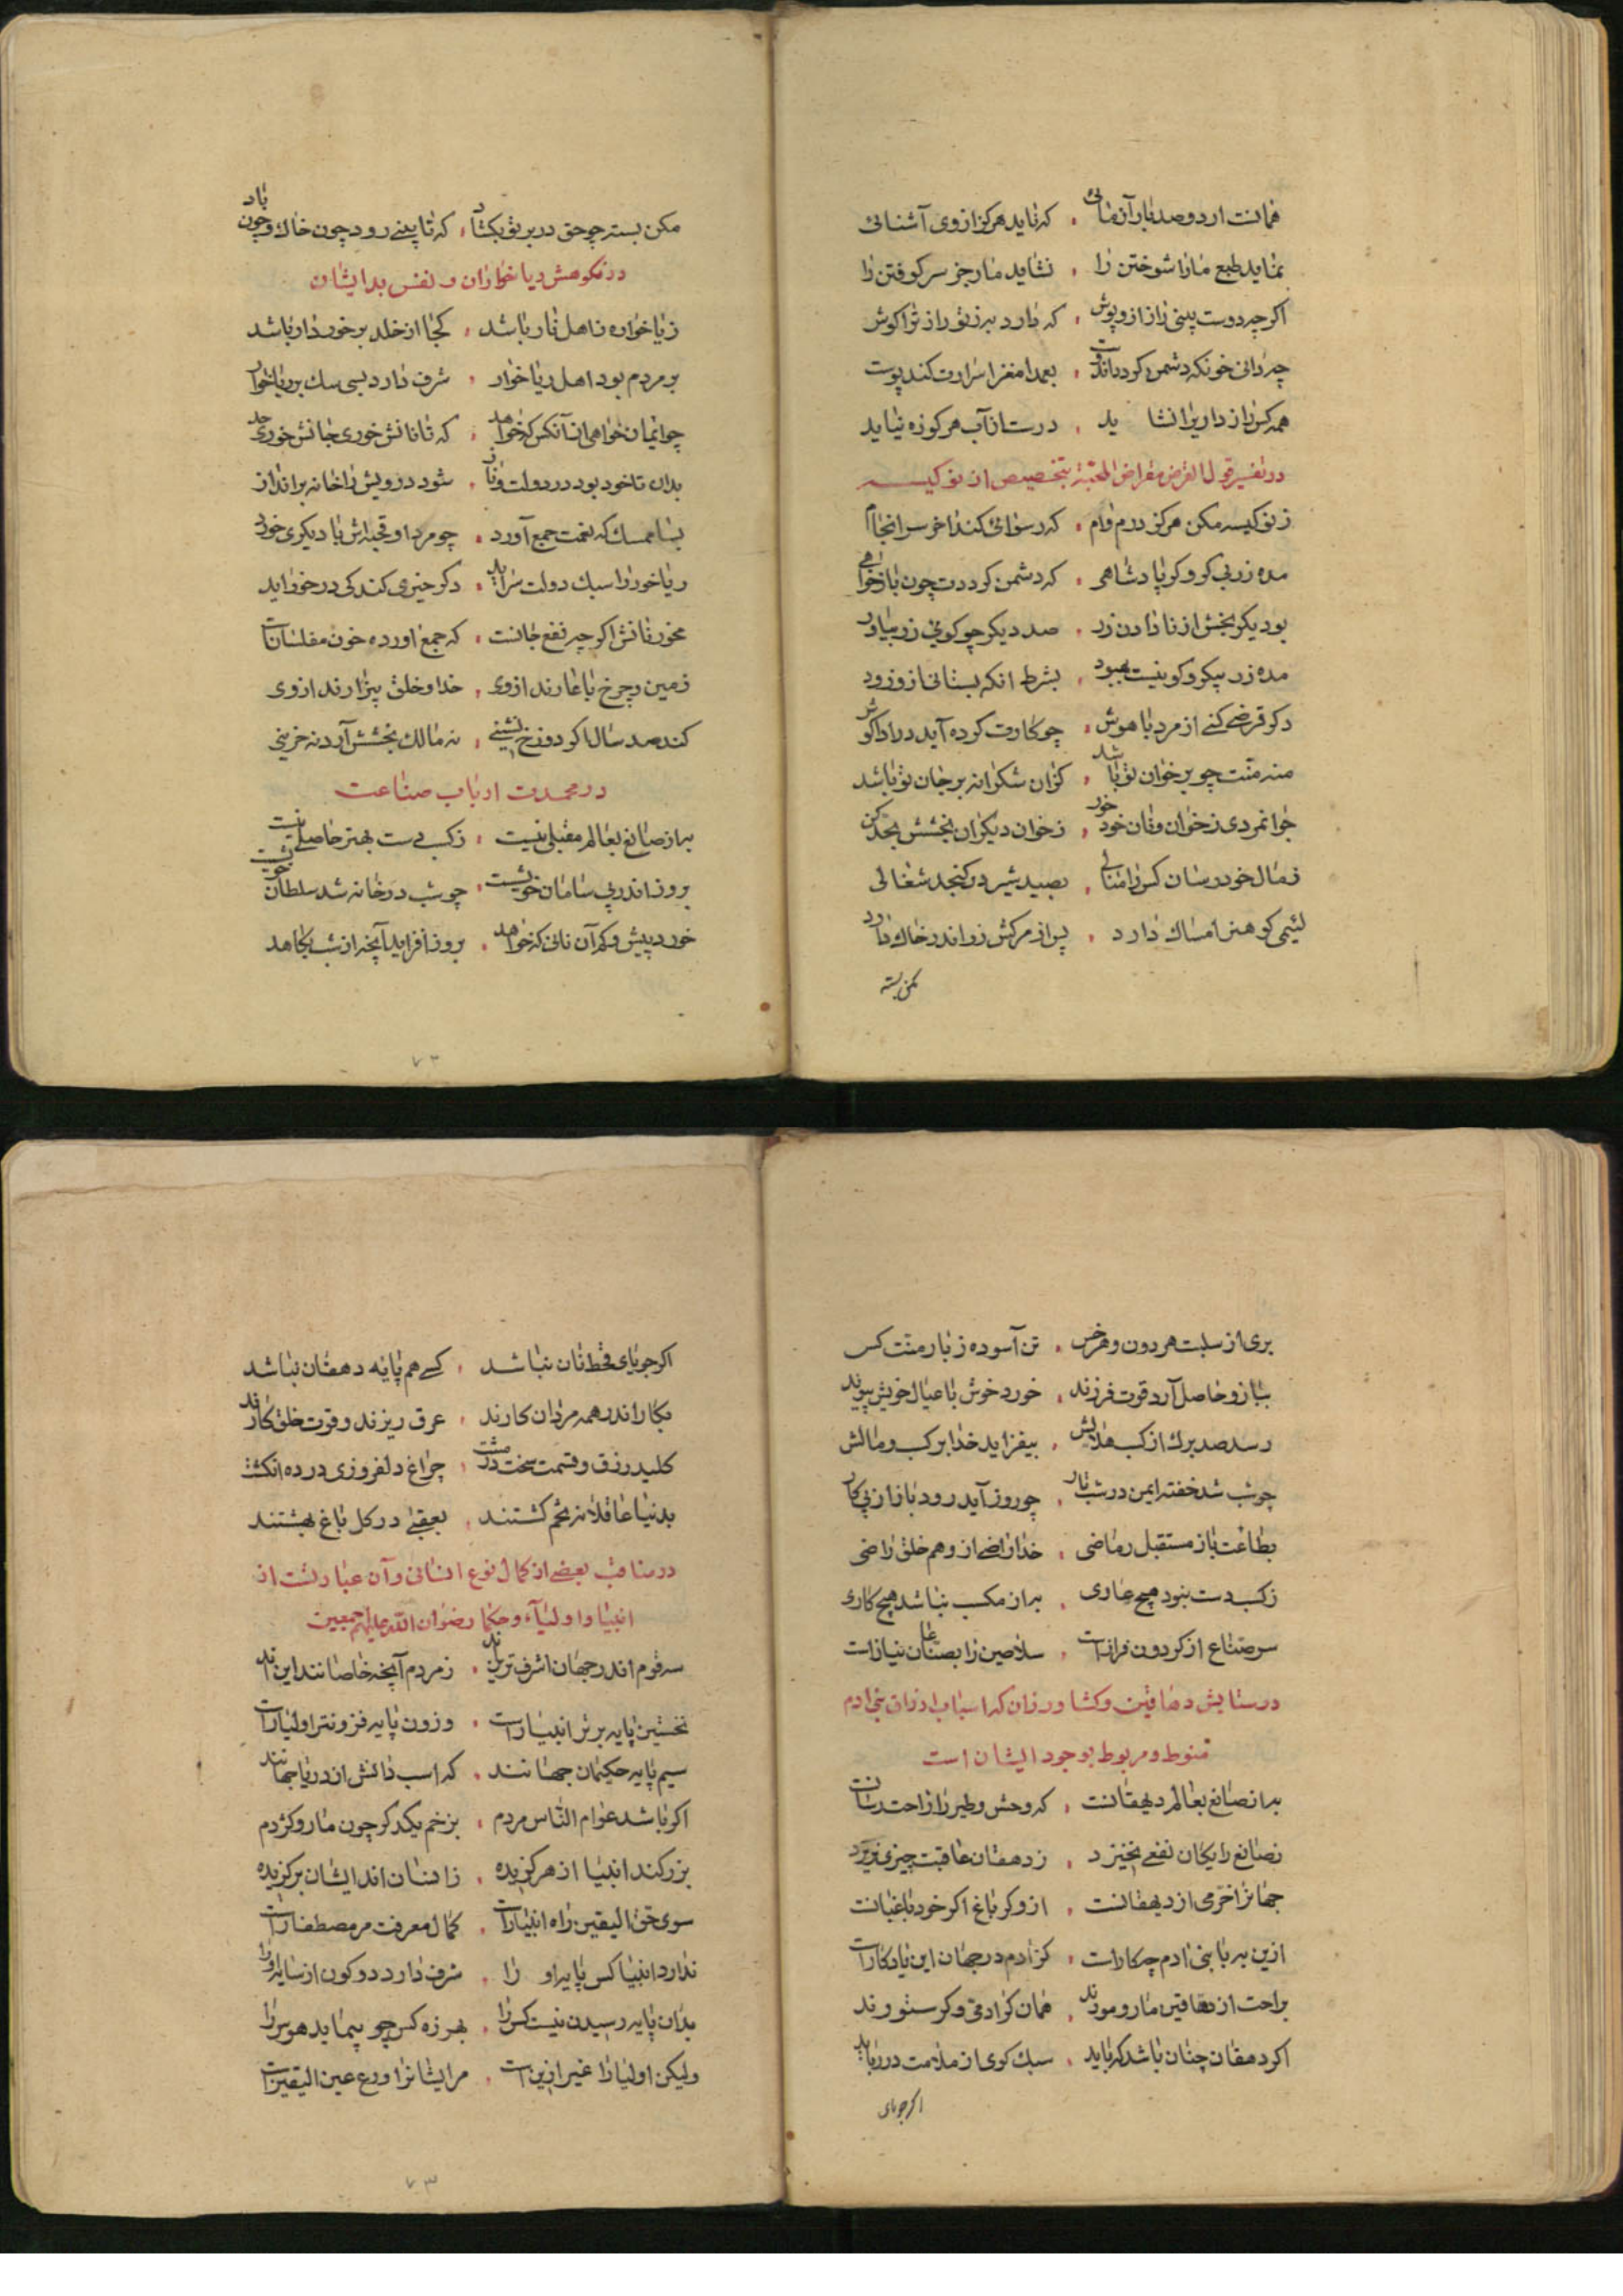 همانت اردو صد بار آزمائی ، که ناید هرکز ازوی آشنائی
نماید طبع مارا سوختن را ، نشاید مار جز سرکوفتن را
اکرچه دوست بینی راز ازو پوش ، که دارد بر زتو راز ترا کوش
چه دانی خونکه دشمن کردد اندوست ، بعمدا مغز اسرارت کند پوست
همه کس رازداریرا نشاید ، درست از آب هر کوزه نیاید
در تفسیر قول القرض مقراض المحبة بتخصیص از نو کیسه
ز نو کیسه مکن هرکز درم وام ، که رسوائی کند اخر سرانجام
مده زر بی کرو کر پادشاهی ، که دشمن کرددت چون باز خواهی
بود یکر بخش از نا دادن زر ، صد دیکر چو کوئی زر بیاور
مده زر بیکرو کو نیست بهبود ، بشرط انکه بستانی ازو زود
دکر قرضی کنے از مرد با هوش ، چو کارت کرده آید در ادا کوش
منه منت چو بر خوان تو باشد ، کزان شکرانه بر جان تو باشد
جوانمردی ز خوان و نان خود خور ، ز خوان دیکران بخشش بحد کن
ز مال خود رسان کس را منالی ، بصید شیر در کنجد شغالی
لئیمی کو هنر امساک دارد ، پس از مرکش زر اندر خاک دارد
مکن بسته
مکن بسته چو حق در بر تو بکشاد ، که تا بینے رود چون خاک و چون باد
در نکوهش ریا خواران و نفس بد ایشان
ریا خواره ز اهل نار باشد ، کجا از خلد برخوردار باشد
بر مردم بود اهل ریا خوار ، شرف دارد بسی سک بر ریا خوار
چو ایمان خواهی از آنکس که خواهد ، که تا نانش خوری جانش خورد
بدان تا خود بود در دولت و ناز ، شود درویش را خانه برانداز
بسا ممسک که نعمت جمع آورد ، چو مرد او قحبه اش با دیکری خورد
ریا خور را سبک دولت سراید ، دکر خیری کند کی در خور آید
مخور نانش اکرچه نفع جانست ، که جمع اورده خون مفلسانست
زمین و چرخ با عارند ازوی ، خدا و خلق بیزارند ازوی
کند صد سال اکر دوزخ نشینے ، نه مالک بخشش آرد نه خزینی
در محمدت ارباب صناعت
به از صانع بعالم مقبلی نیست ، ز کسب دست بهتر حاصلی نیست
بروز اندر پی سامان خویشست ، چو شب در خانه شد سلطان خویشست
خورد بیش و کم آن نانی که خواهد ، بروز افزاید آنچه از شب بکاهد
۷۳
بری از سبلت هر دون و هر خس ، تن آسوده ز بار منت کس
ببازو حاصل آرد قوت فرزند ، خورد خوش با عیال خویش پیوند
رسد صد برک از کسب حلالش ، بیفزاید خدا بر کسب و مالش
چو شب شد خفته ایمن در شب تار ، چو روز آید رود باز از پی کار
بطاعت باز مستقبل ز ماضی ، خدا راضی از و هم خلق راضی
ز کسب دست نبود هیچ عاری ، به از مکسب نباشد هیچ کاری
سر صناع از کردون فرازست ، سلاطین را بصناعان نیازست
در ستایش دهاقین و کشاورزان که اسباب ارزاق بنی ادم
منوط و مربوط بوجود ایشان است
به از صانع بعالم دهقانست ، که وحش و طیر را راحت رسانست
ز صانع رایکان نفعی نخیزد ، ز دهقان عاقبت چیزی بریزد
جهانرا خرمی از دهقانست ، ازو کر باغ اکر خود باغبانست
ازین به با بنی ادم چکارست ، کز ادم در جهان این یادکارست
براحت از دهاقین مار و مورند ، همان کز ادمی و کر ستورند
اکر دهقان چنان باشد که باید ، سبک کوی از ملامت در رباید
اکر جویای
اکر جویای قحط نان نباشد ، کسے هم پایه دهقان نباشد
بکار اندر همه مردان کارند ، عرق ریزند و قوت خلق کارند
کلید رزق و قسمت سخت در مشت ، چراغ دلفروزی در ده انکشت
بدنیا عاقلانه تخم کشتند ، بعقبے در کل باغ بهشتند
در مناقب بعضے از کمال نوع انسانی و آن عبارتست از
انبیا و اولیاء و حکما رضوان الله علیهم اجمعین
سه قوم اندر جهان اشرف ترینند ، ز مردم آنچه خاصانند اینند
نخستین پایه برتر انبیاراست ، وزون پایه فزونتر اولیاراست
سیم پایه حکیمان جهانند ، که اسب دانش از دریا جهانند
اکر باشد عوام الناس مردم ، بزخم یکدکر چون مار و کژدم
بزرکند انبیا از هر کزیده ، ز انسان اند ایشان برکزیده
سوی حق الیقین راه انبیاراست ، کمال معرفت مر مصطفاراست
ندارد انبیا کس پایه او را ، شرف دارد دو کون از سایه اورا
بدان پایه رسیدن نیست کس را ، بهرزه کس چو پیماید هوس را
ولیکن اولیارا غیر ازین است ، مر ایشانرا ورع عین الیقین است
۷۳